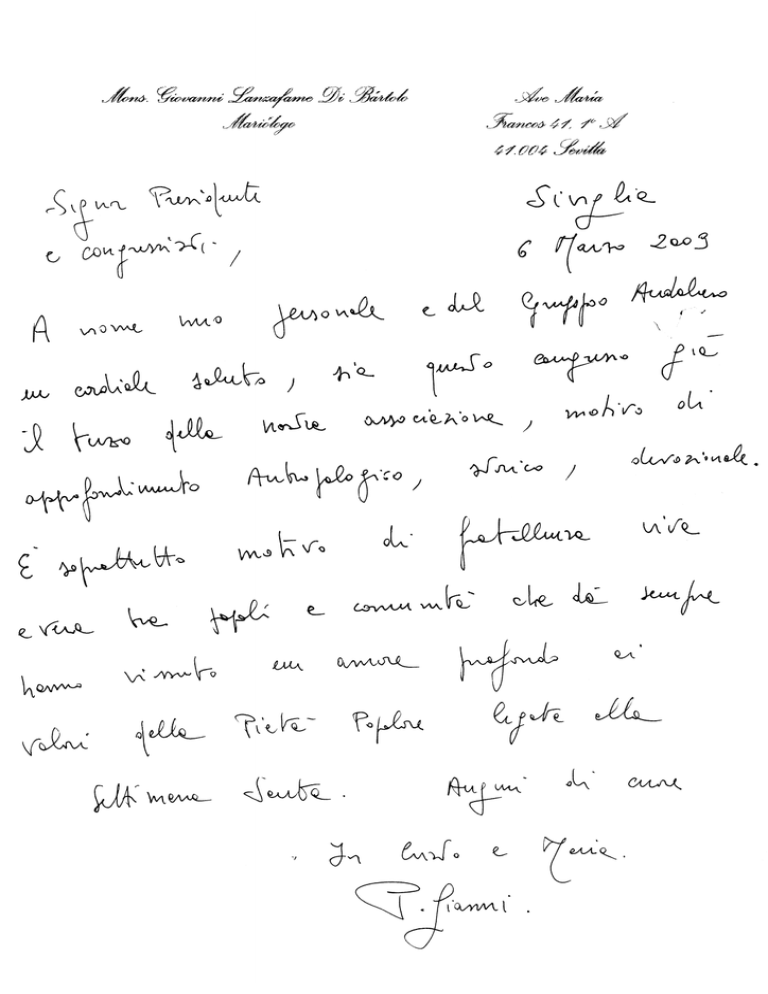 Mons. Giovanni Lanzafame Di Bártolo
Mariólogo
Ave María
Francos 41, 1º A
41.004 Sevilla
Signor Presidente
e congressisti,
Siviglia
6 Marzo 2009
A nome mio personale e del Gruppo Andaluso
un cordiale saluto, sia questo congresso già
il terzo della nostra associazione, motivo di
approfondimento Antropologico, storico, devozionale.
E' soprattutto motivo di fratellanza viva
e vera tra popoli e comunità che da sempre
hanno vissuto un amore profondo ai
valori della Pietà Popolare legata alla
Settimana Santa. Auguri di cuore
In Cristo e Maria.
P. Gianni.